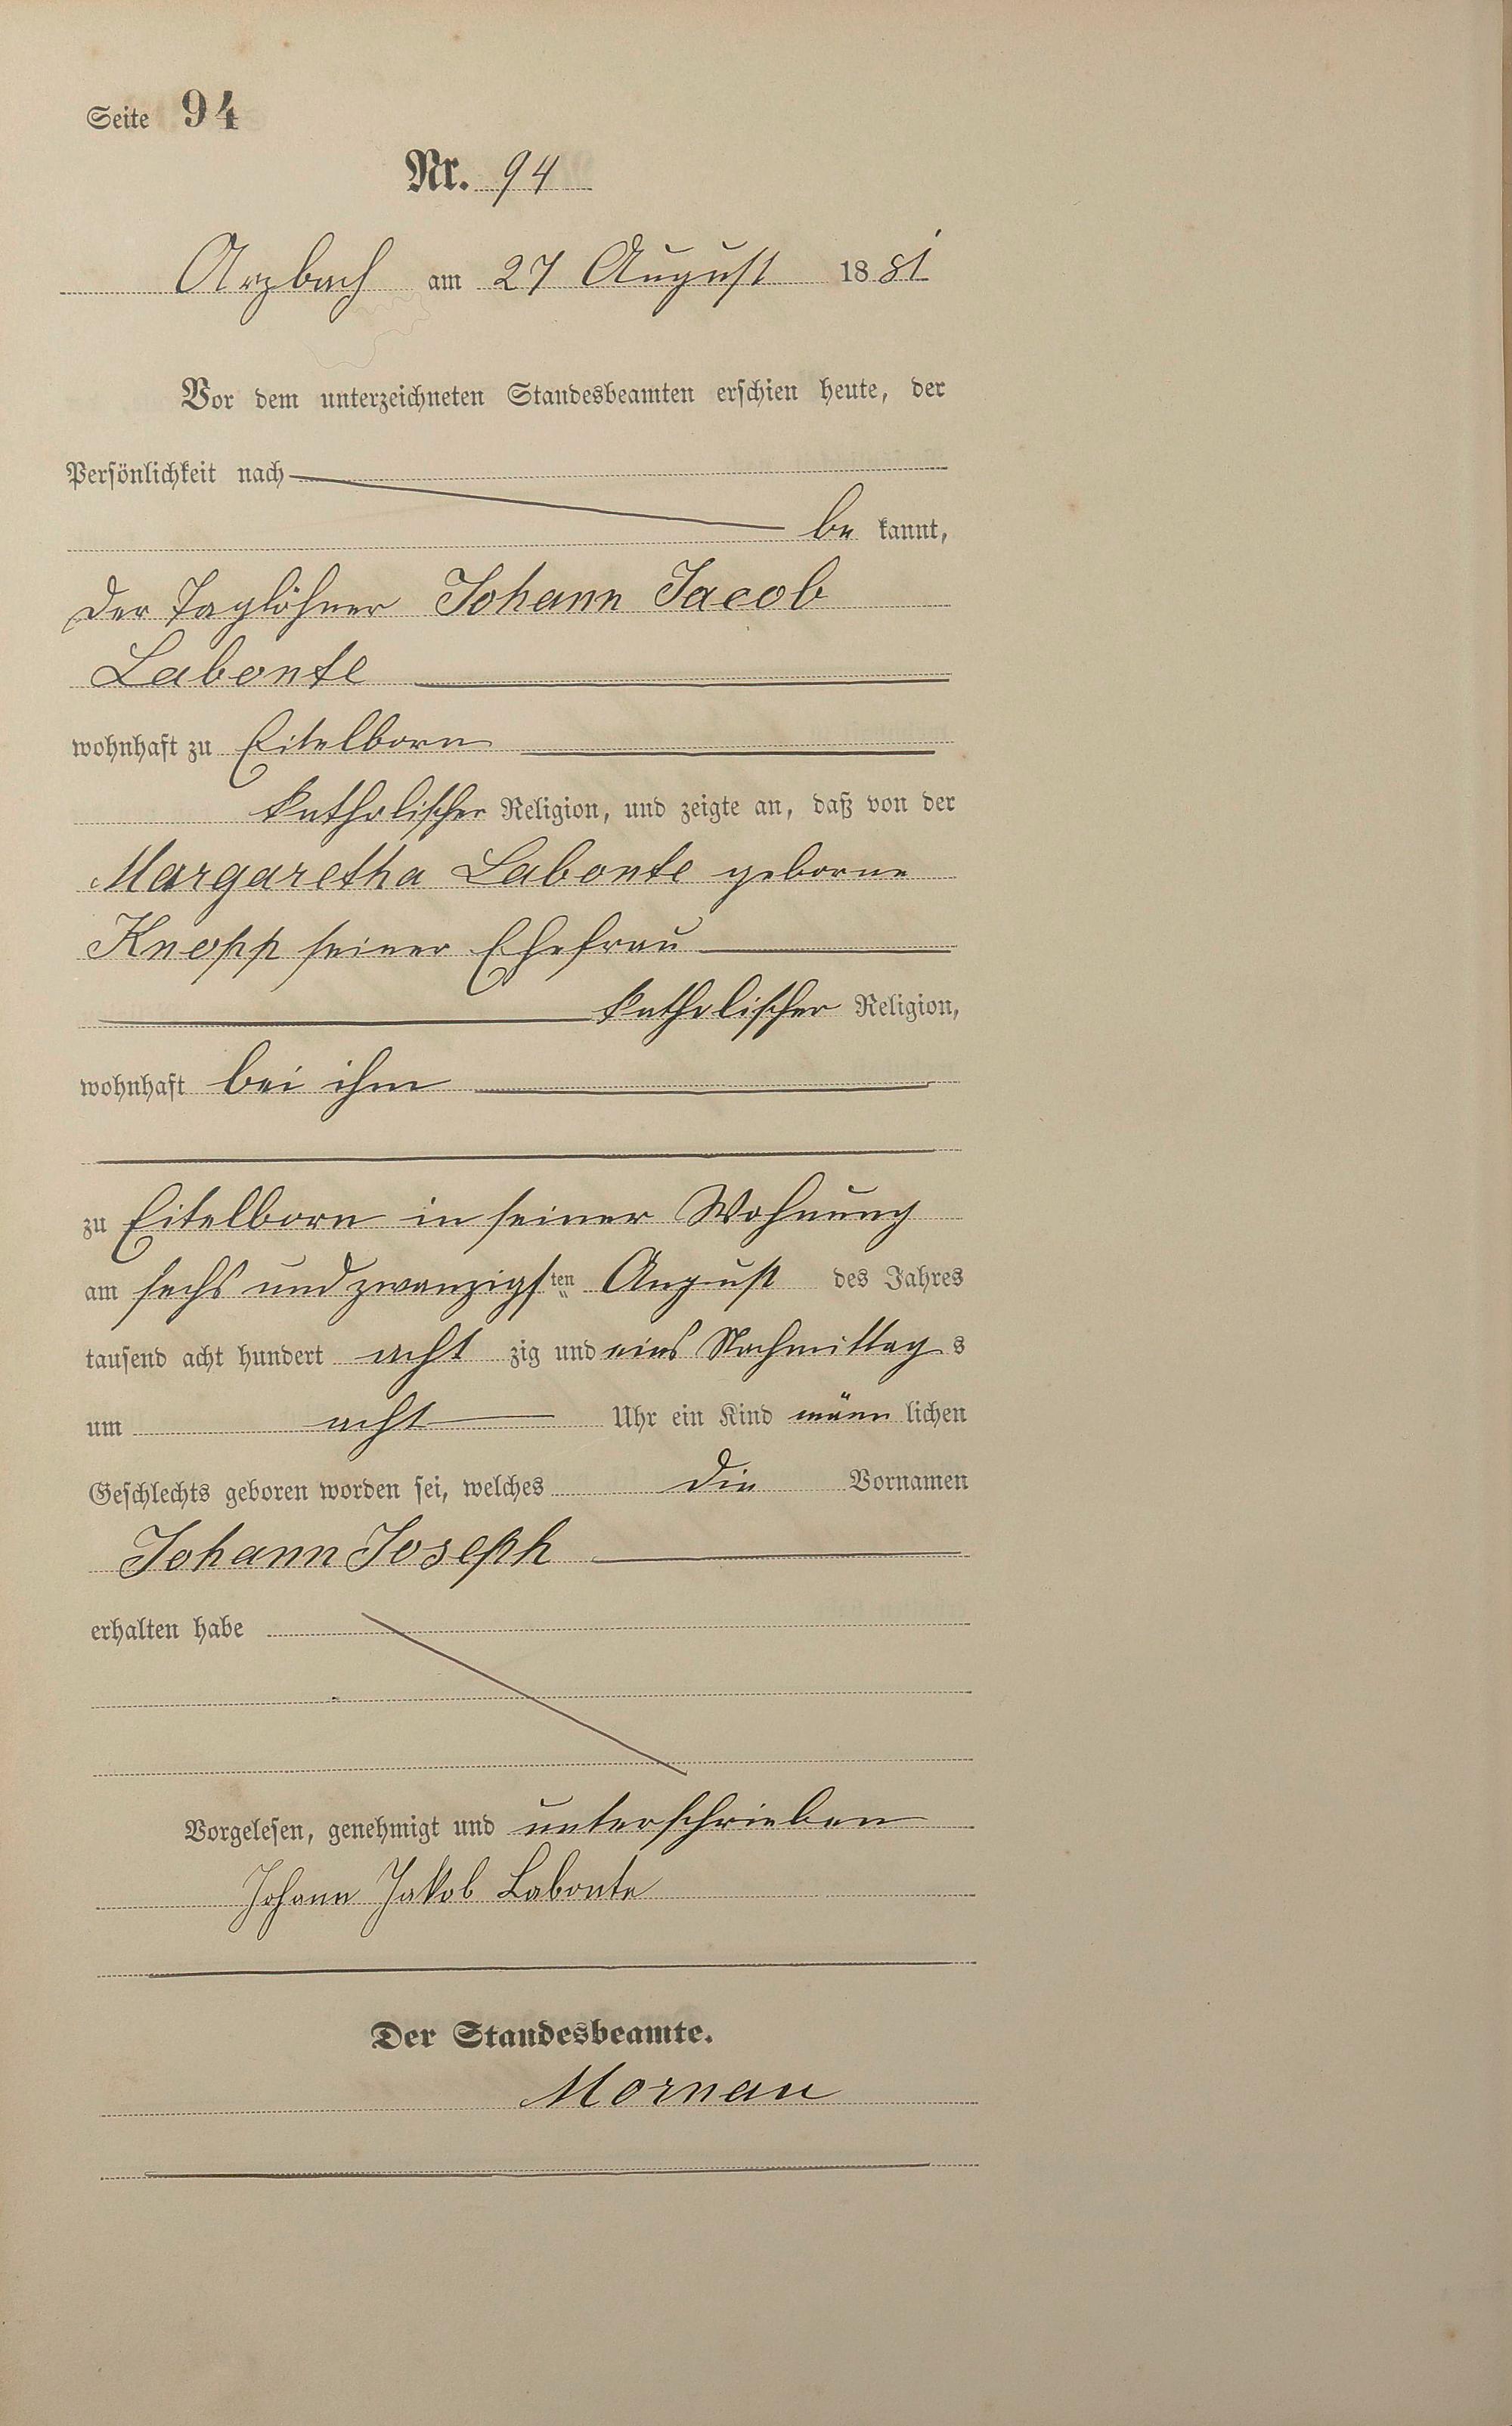 Seite 94
Nr. 94
Arzbach am 27 August 1881
Vor dem unterzeichneten Standesbeamten erschien heute, der
Persönlichkeit nach
be kannt,
der Taglöhner Johann Jacob
Labonte
wohnhaft zu Eitelborn
katholischer Religion, und zeigte an, daß von der
Margaretha Labonte geborne
Knopp seiner Ehefrau
katholischer Religion,
wohnhaft bei ihm
zu Eitelborn in seiner Wohnung
am sechs und zwanzigsten August des Jahres
tausend acht hundert acht zig und eins Nachmittags
um acht Uhr ein Kind männ lichen
Geschlechts geboren worden sei, welches die Vornamen
Johann Joseph
erhalten habe
Vorgelesen, genehmigt und unterschrieben
Johann Jakob Labonte
Der Standesbeamte.
Mornau